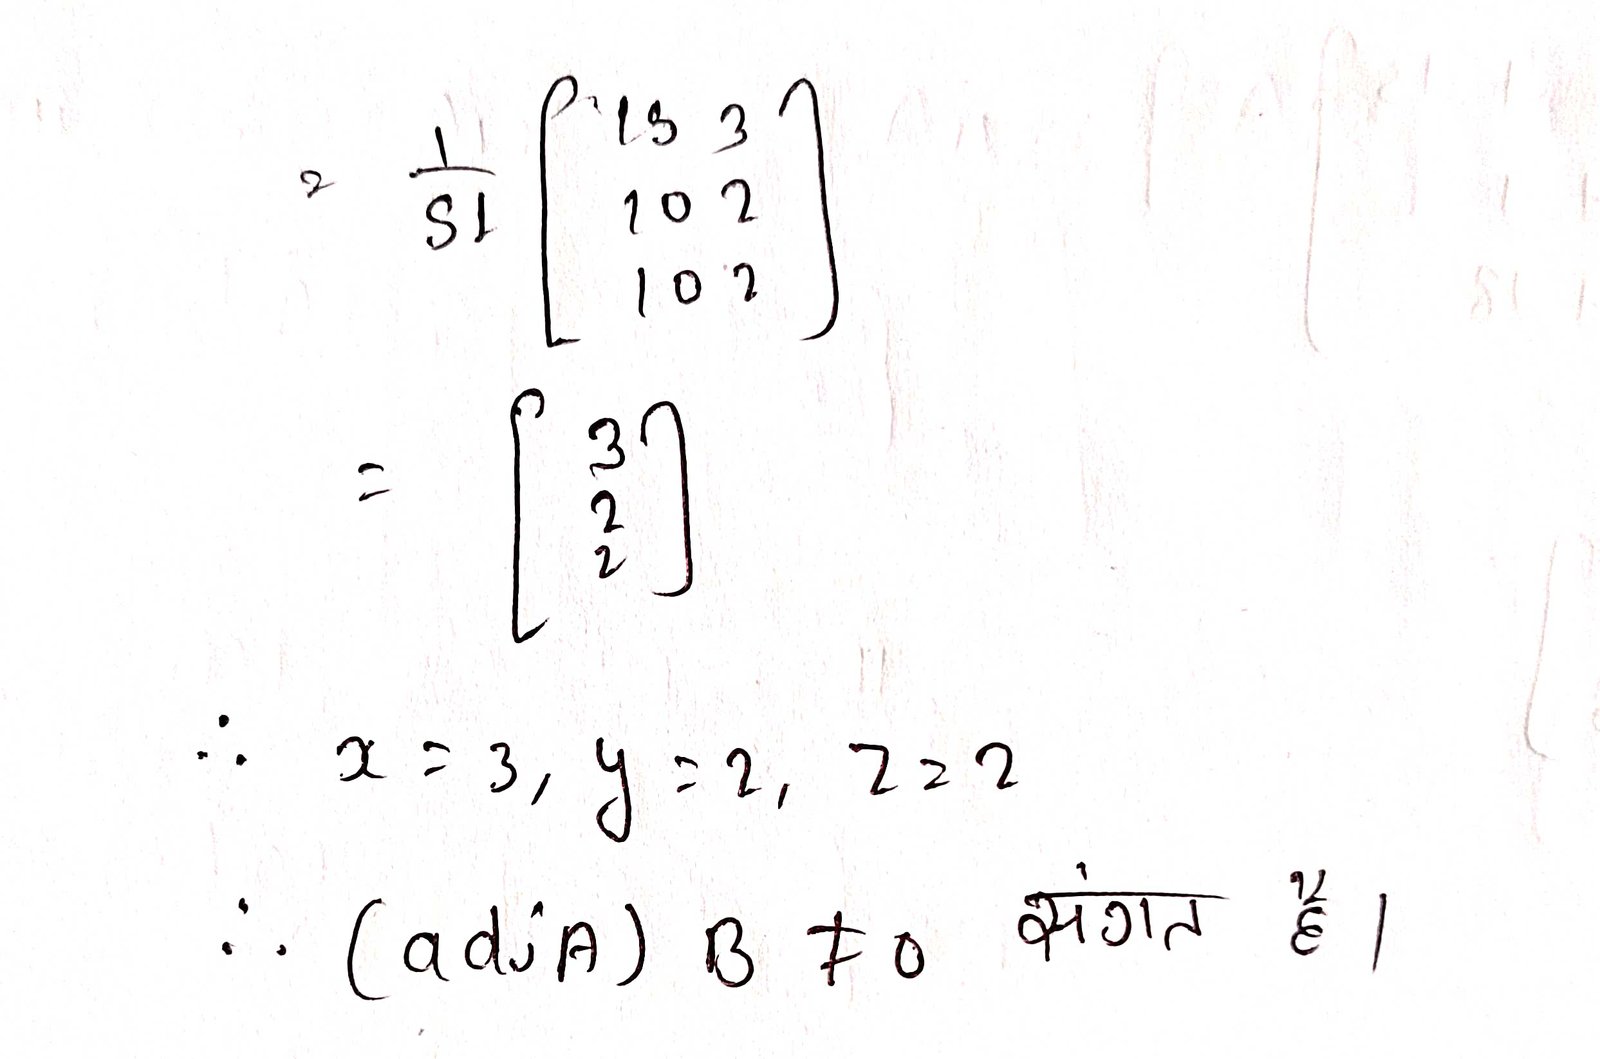 = 1/51 [ 153
102
102 ]
= [ 3
2
2 ]
∴ x = 3, y = 2, z = 2
∴ (adjA) B ≠ 0 संगत है।